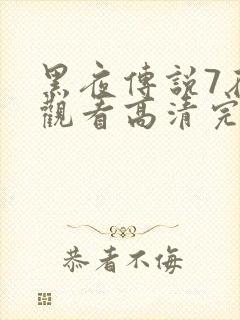 黑夜傳說7在
觀看高清完
恭者不侮